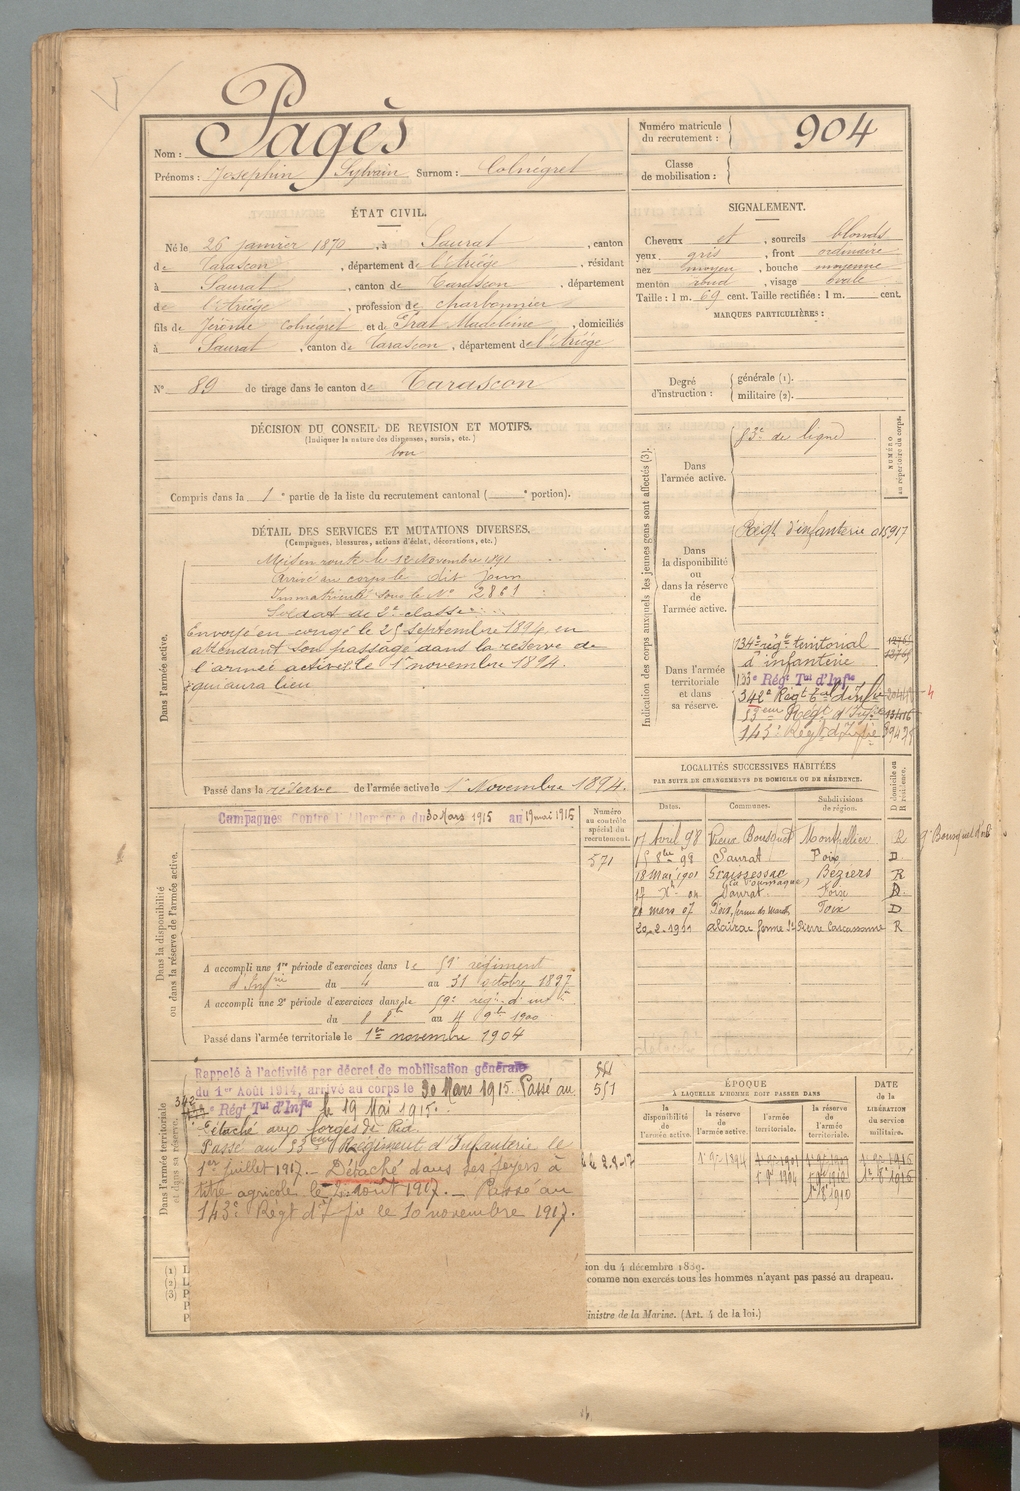 Nom : Pagès
Prénoms : Josephin Sylvain Surnom : Colnégret
Numéro matricule du recrutement : 904
Classe de mobilisation :
ÉTAT CIVIL.
Né le 26 janvier 1870, à Saurat, canton
de Tarascon, département de l'Ariège, résidant
à Saurat, canton de Tarascon, département
de l'Ariège, profession de charbonnier
fils de Jérôme Colnégret et de Grat Madeleine, domiciliés
à Saurat, canton de Tarascon, département de l'Ariège
N° 89 de tirage dans le canton de Tarascon
SIGNALEMENT.
Cheveux et, sourcils blonds
yeux gris, front ordinaire
nez moyen, bouche moyenne
menton rond, visage ovale
Taille : 1 m. 69 cent. Taille rectifiée : 1 m. cent.
MARQUES PARTICULIÈRES :
Degré d'instruction : générale (1). militaire (2).
DÉCISION DU CONSEIL DE REVISION ET MOTIFS.
(Indiquer la nature des dispenses, sursis, etc.)
bon
Compris dans la 1e partie de la liste du recrutement cantonal ( e portion).
DÉTAIL DES SERVICES ET MUTATIONS DIVERSES.
(Campagnes, blessures, actions d'éclat, décorations, etc.)
Dans l'armée active.
Mis en route le 12 Novembre 1891
Arrivé au corps le dit jour
Immatriculé sous le N° 2861
Soldat de 2e classe
Envoyé en congé le 25 septembre 1894, en
attendant son passage dans la réserve de
l'armée active le 1er novembre 1894.
qui aura lieu
Passé dans la réserve de l'armée active le 1er Novembre 1894.
Indication des corps auxquels les jeunes gens sont affectés (3).
NUMÉRO au répertoire du corps.
Dans l'armée active.
83e de ligne
Dans la disponibilité ou dans la réserve de l'armée active.
Regt d'infanterie 015917
Dans l'armée territoriale et dans sa réserve.
134e régt territorial
d'infanterie
133e Régt Tal d'Infie
342e Régt Tal d'Infie
53eme Régt d'Infie
143e Régt d'Infie
LOCALITÉS SUCCESSIVES HABITÉES
PAR SUITE DE CHANGEMENTS DE DOMICILE OU DE RÉSIDENCE.
Dates. Communes. Subdivisions de région. D domicile ou R résidence.
17 Avril 98 Vieux Bousquet Montpellier R
15 8bre 99 Saurat Foix D
18 Mai 1901 Graissessac Béziers R
17 Xe 04 Saurat Foix D
21 mars 07 Foix, ferme Foix D
20-2-1911 alairac ferme St Pierre Carcassonne R
Dans la disponibilité ou dans la réserve de l'armée active.
Campagnes Contre l'Allemagne du 30 Mars 1915 au 19 mai 1915
Numéro au contrôle spécial du recrutement.
571
A accompli une 1re période d'exercices dans le 59e régiment
d'Infrie du 4 au 31 octobre 1897
A accompli une 2e période d'exercices dans le 59e reg. d'infie
du 8 8bre au 4 9bre 1900
Passé dans l'armée territoriale le 1er novembre 1904
Dans l'armée territoriale et dans sa réserve.
Rappelé à l'activité par décret de mobilisation générale
du 1er Août 1914, arrivé au corps le 30 Mars 1915. Passé au
342e Régt Tal d'Infie le 19 Mai 1915.
Détaché aux forges de Pid.
Passé au 53eme Régiment d'Infanterie le
1er juillet 1917. — Détaché dans ses foyers à
titre agricole le 2 août 1917. — Passé au
143e Régt d'Ifie le 10 novembre 1917.
551
ÉPOQUE
À LAQUELLE L'HOMME DOIT PASSER DANS
la disponibilité de l'armée active. la réserve de l'armée active. l'armée territoriale. la réserve de l'armée territoriale.
DATE DE LA LIBÉRATION DU service militaire.
1er 9e 1894 1er 9e 1904 1er 9e 1910 1er 8e 1916
1er 8e 1910
(1) L
(2) L
(3) P
P
P
ion du 4 décembre 1889.
comme non exercés tous les hommes n'ayant pas passé au drapeau.
inistre de la Marine. (Art. 4 de la loi.)